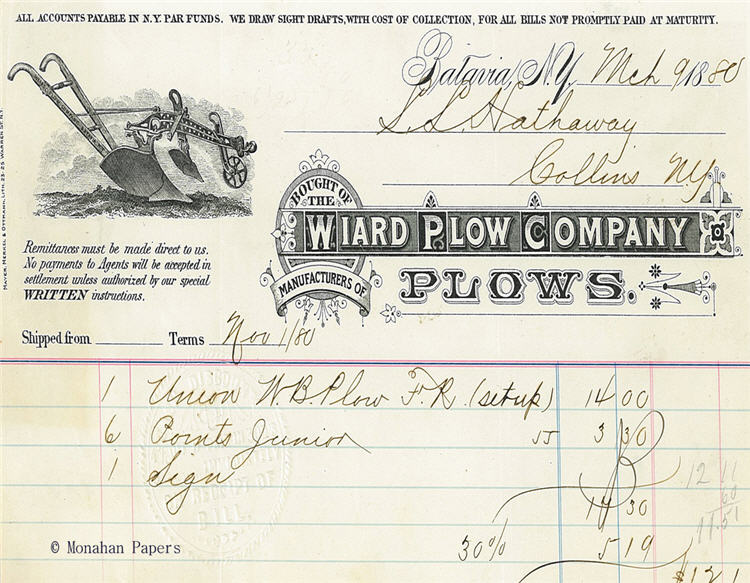 ALL ACCOUNTS PAYABLE IN N.Y. PAR FUNDS. WE DRAW SIGHT DRAFTS, WITH COST OF COLLECTION, FOR ALL BILLS NOT PROMPTLY PAID AT MATURITY.
Batavia, N.Y. Mch 9 1880
S. L. Hathaway
Collins N.Y.
BOUGHT OF
THE
WIARD PLOW COMPANY
MANUFACTURERS OF
PLOWS.
MAYER, MERKEL & OTTMANN, LITH. 23-25 WARREN ST. N.Y.
Remittances must be made direct to us.
No payments to Agents will be accepted in
settlement unless authorized by our special
WRITTEN instructions.
Shipped from Terms Nov 1/80
1 Union W.B. Plow F.R. (set up) 14 00
6 Points Junior 55 3 30
1 Sign
17 30
30% 5 19
12 11
60
11.51
RECEIPT OF
BILL
© Monahan Papers